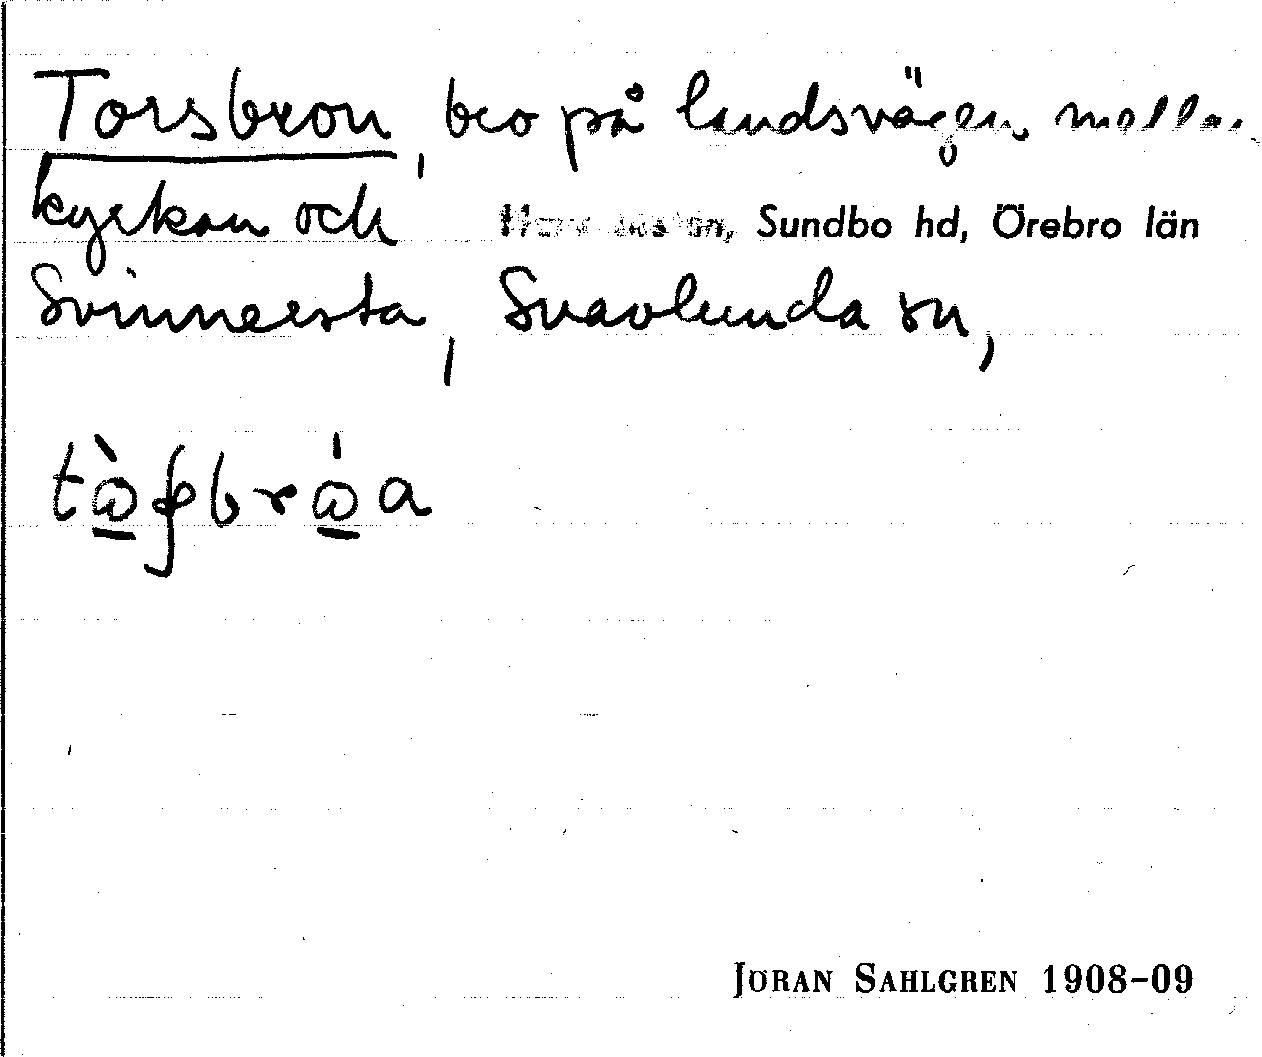 Torsbron, bro på landsvägen mellan
kyrkan och Sundbo hd, Örebro län
Svinnersta, Svavlunda sn,
JÖRAN SAHLGREN 1908–09